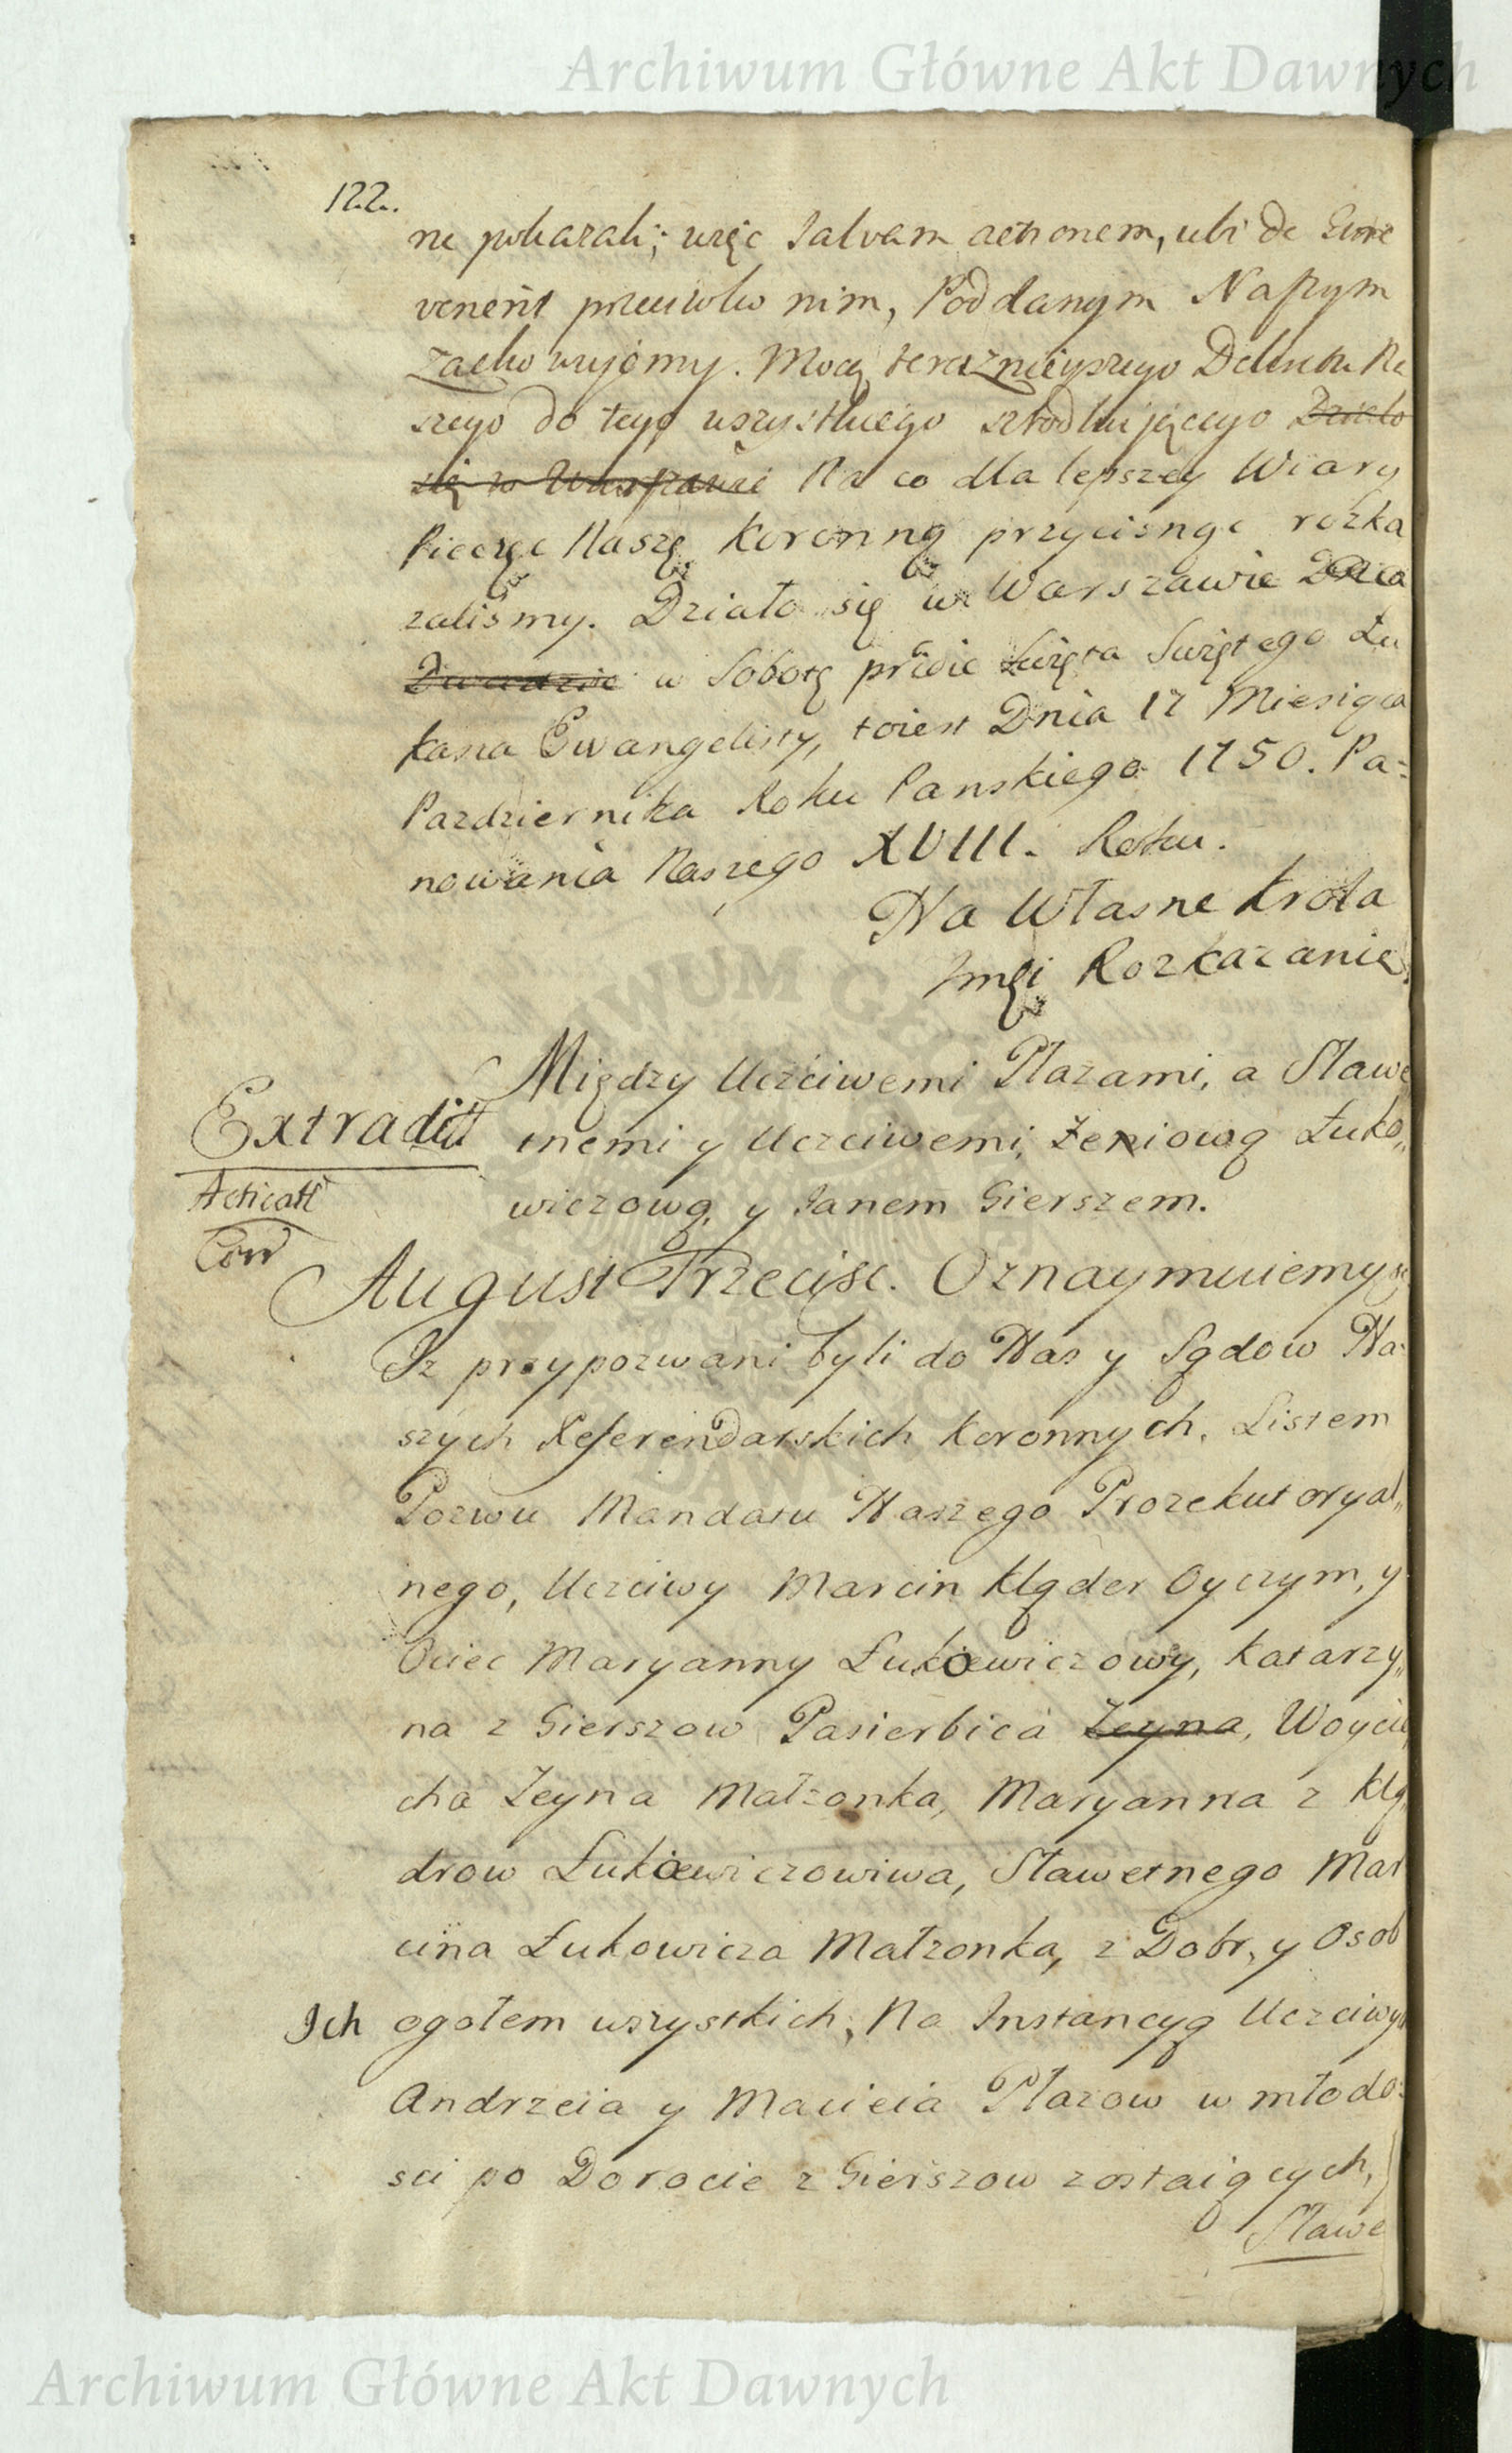 Archiwum Główne Akt Dawnych
122.
ne pokazali; więc Salvam actionem, ubi de Iure
venerit przeciwko nim, Poddanym Naszym
zachowujemy. Mocą teraznieyszego Dekretu Na
szego do tego wszystkiego szkodlującego Działo
się w Warszawie Na co dla lepszey Wiary
Pieczęc Naszę Koronną przycisnąc rozka
zalismy. Działo się w Warszawie Dnia
w Sobotę pridie Swięta Swiętego Łu
kasza Ewangelisty, toiest Dnia 17 Miesiąca
Pazdziernika Roku Panskiego 1750. Pa=
nowania Naszego XVIII. Roku.
Na Własne Krola
Jmći Rozkazanie
Między Uczciwemi Płazami, a Sławe
tnemi y Uczciwemi, Zeniową Łuko„
wiczową, y Janem Gierszem.
Extradit
Acticatt
Corr
August Trzeci &c. Oznaymuiemy
Iz przypozwani byli do Nas y Sądow Na=
szych Referendarskich Koronnych, Listem
Pozwu Mandatu Naszego Prozekutoryal„
nego, Uczciwy Marcin Kląder Oyczym, y
Ociec Maryanny Łukowiczowy, Katarzy„
na z Gierszow Pasierbica Zeyna, Woycie
cha Zeyna Małzonka, Maryanna z Klą
drow Łukowiczowiwa, Sławetnego Mar
cina Łukowicza Małzonka, z Dobr, y Osob
Ich ogołem wszystkich, Na Instancyą Uczciwych
Andrzeia y Macieia Płazow w młodo=
sci po Dorocie z Gierszow zostaiących,
Sławe
Archiwum Główne Akt Dawnych